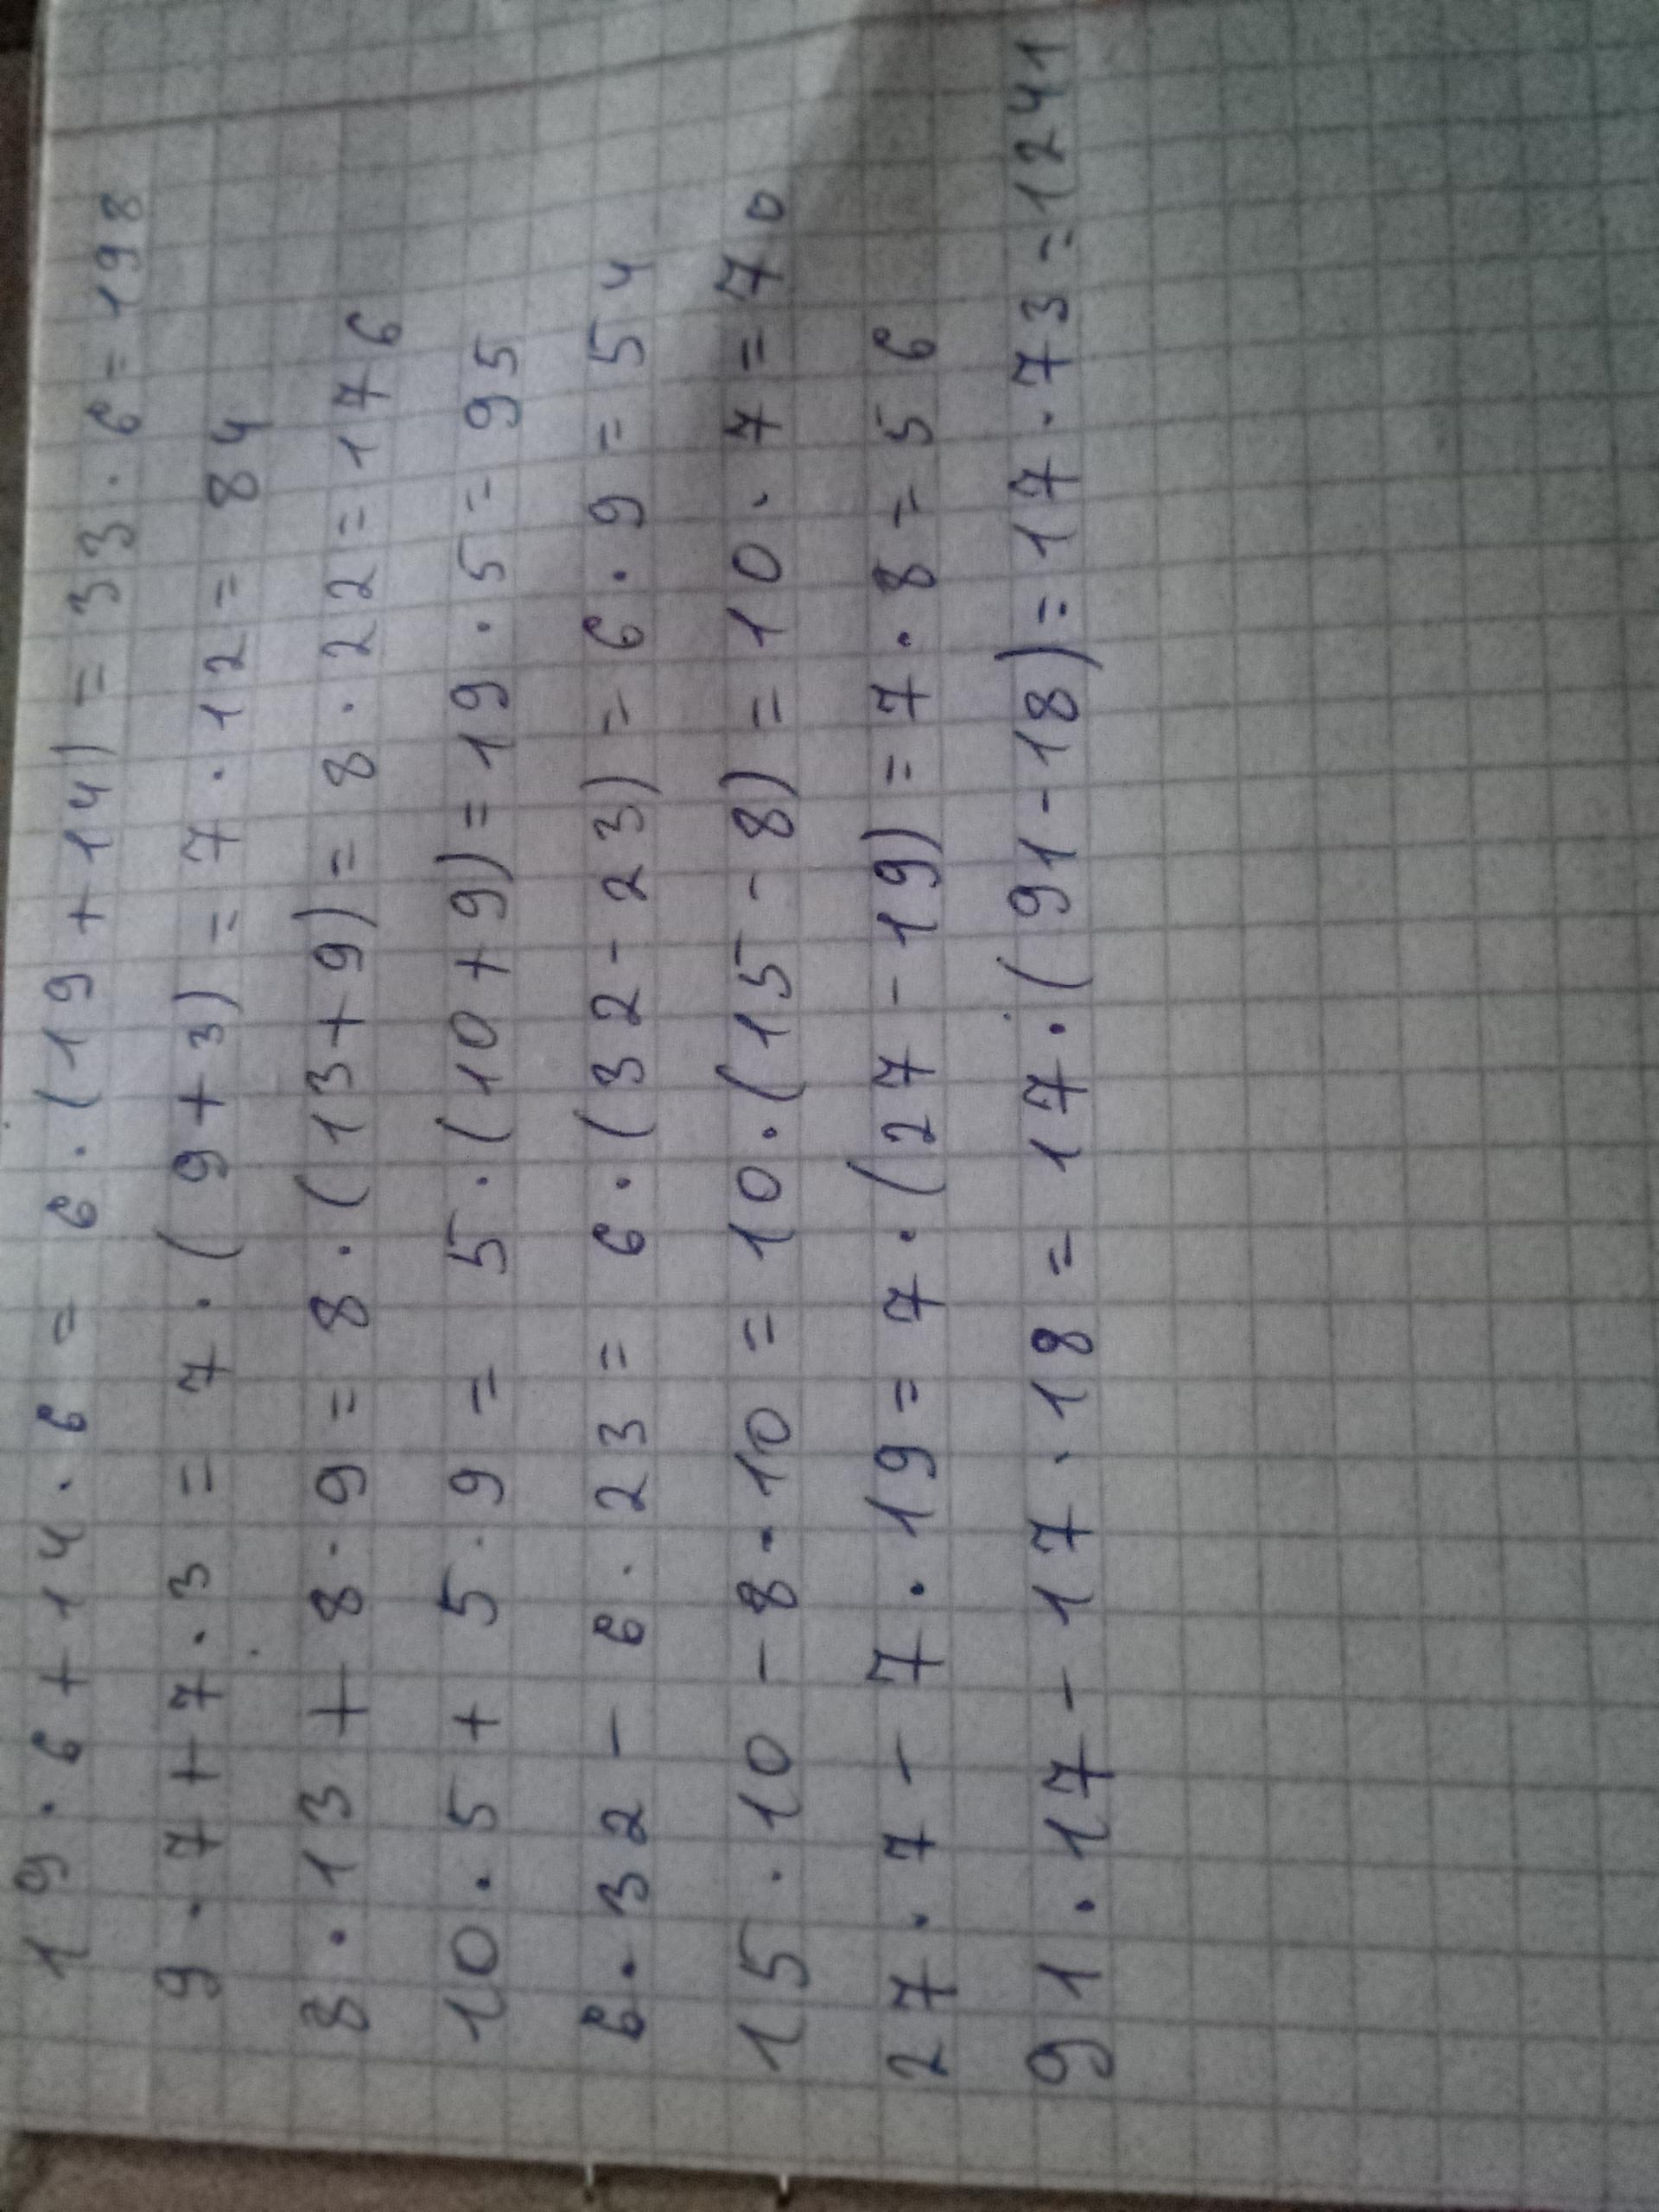 19 · 6 + 14 · 6 = 6 · (19 + 14) = 33 · 6 = 198
9 · 7 + 7 · 3 = 7 · (9 + 3) = 7 · 12 = 84
8 · 13 + 8 · 9 = 8 · (13 + 9) = 8 · 22 = 176
10 · 5 + 5 · 9 = 5 · (10 + 9) = 19 · 5 = 95
6 · 32 - 6 · 23 = 6 · (32 - 23) = 6 · 9 = 54
15 · 10 - 8 · 10 = 10 · (15 - 8) = 10 · 7 = 70
27 · 7 - 7 · 19 = 7 · (27 - 19) = 7 · 8 = 56
91 · 17 - 17 · 18 = 17 · (91 - 18) = 17 · 73 = 1241